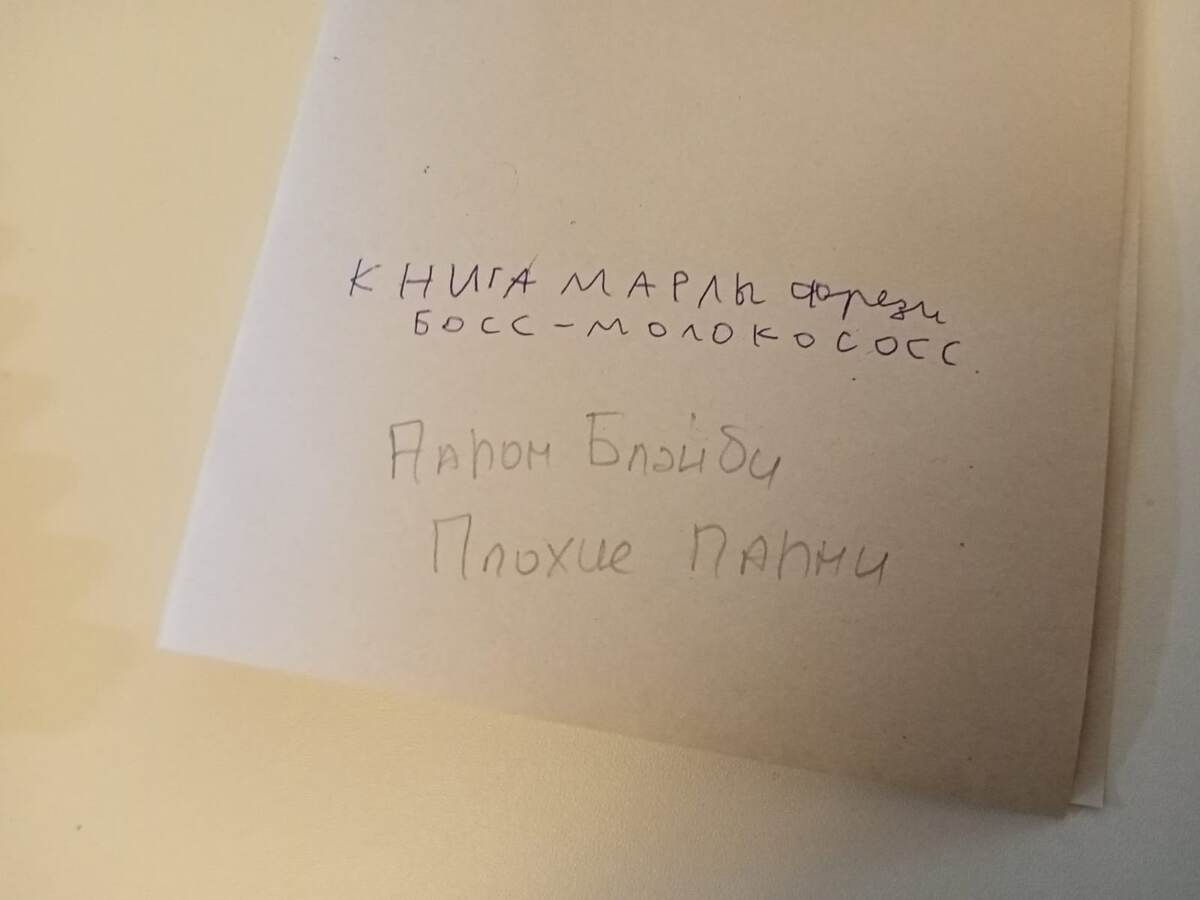 КНИГА МАРЛЫ Фрези
БОСС-МОЛОКОСОСС.
Аарон Блэйби
Плохие парни